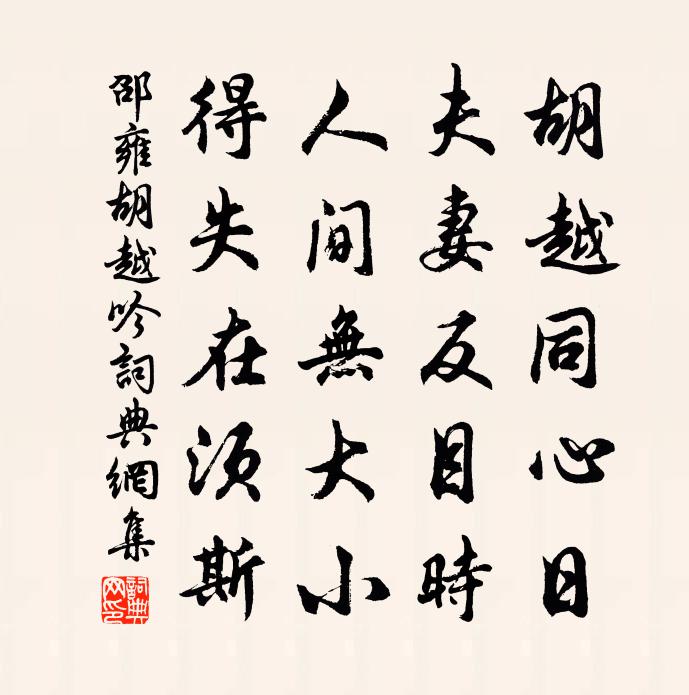 胡越同心日
夫妻反目時
人間無大小
得失在須斯
邵雍胡越吟詞典網集
詞典網印